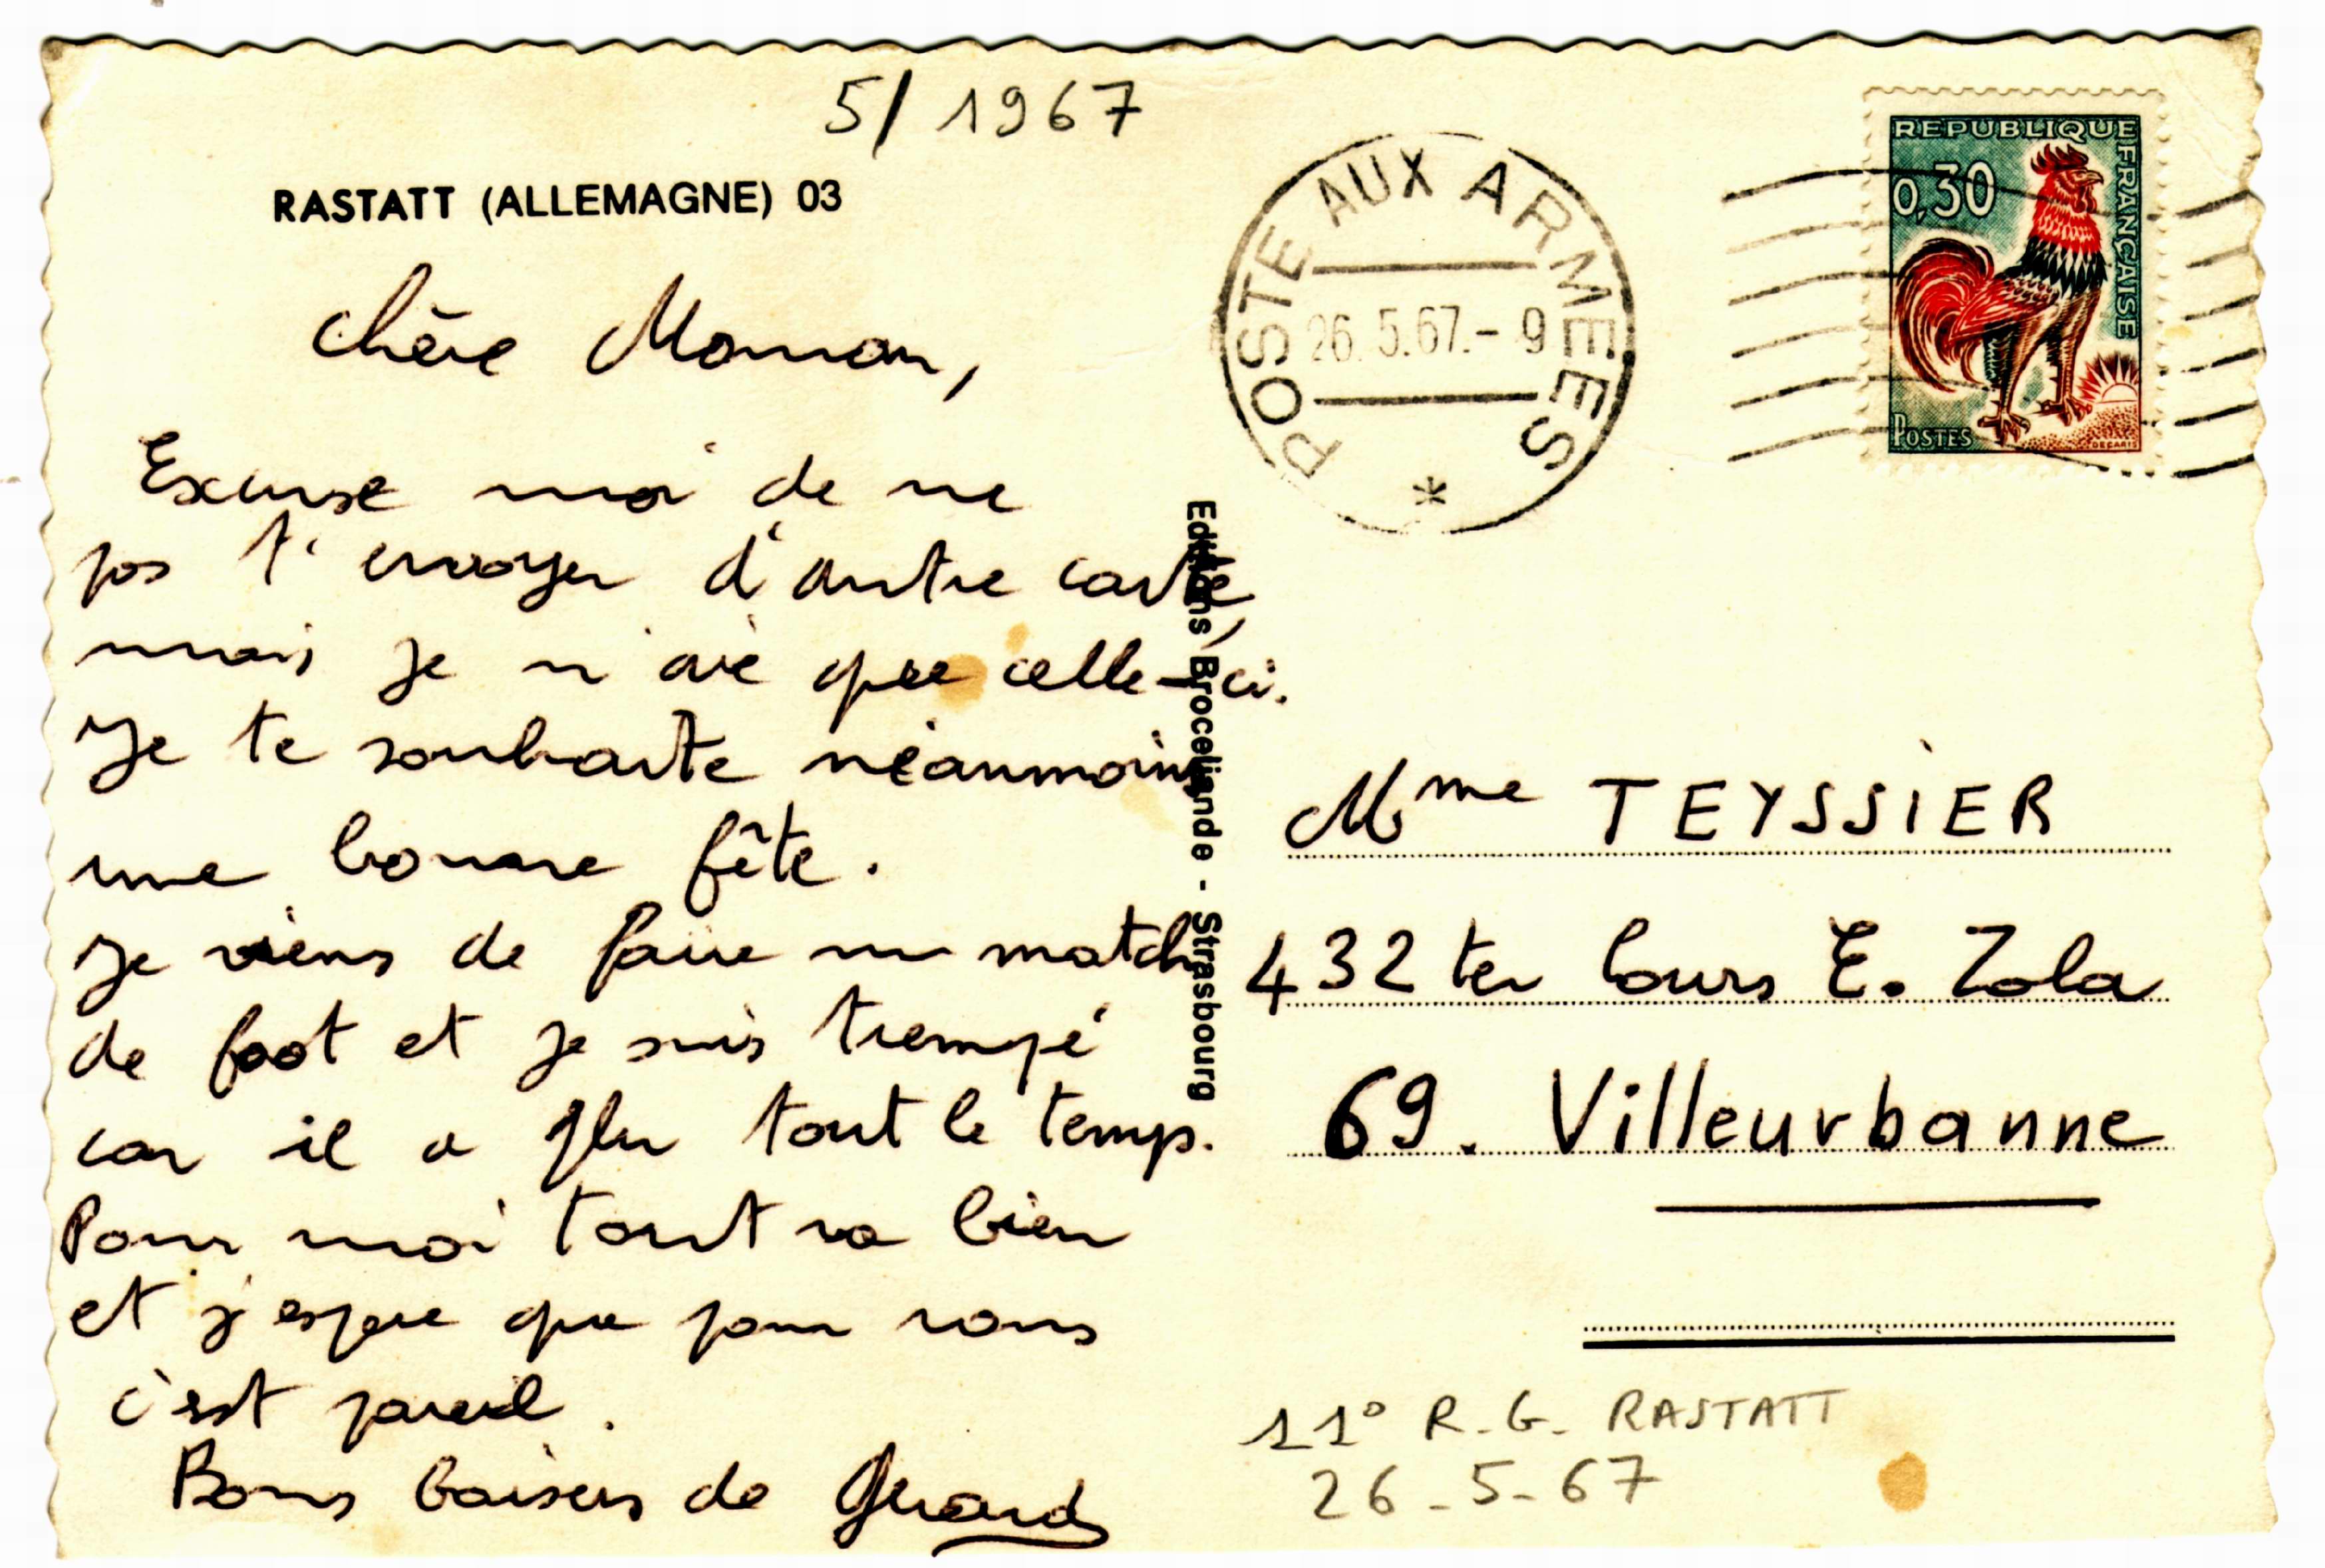 5/ 1967
RASTATT (ALLEMAGNE) 03
Chère Maman,
Excuse moi de ne
pas t'envoyer d'autre carte,
mais je n'ai que celle-ci.
Je te souhaite néanmoins
une bonne fête.
Je viens de faire un match
de foot et je suis trempé
car il a plu tout le temps.
Pour moi tout va bien
et j'espère que pour vous
c'est pareil.
Bons baisers de Gérard
Editions Broceliande - Strasbourg
POSTE AUX ARMEES
26.5.67.- 9
*
REPUBLIQUE FRANÇAISE
0,30
POSTES
DECARIS
Mme TEYSSIER
432 ter Cours E. Zola
69. Villeurbanne
11° R.G. RASTATT
26-5-67